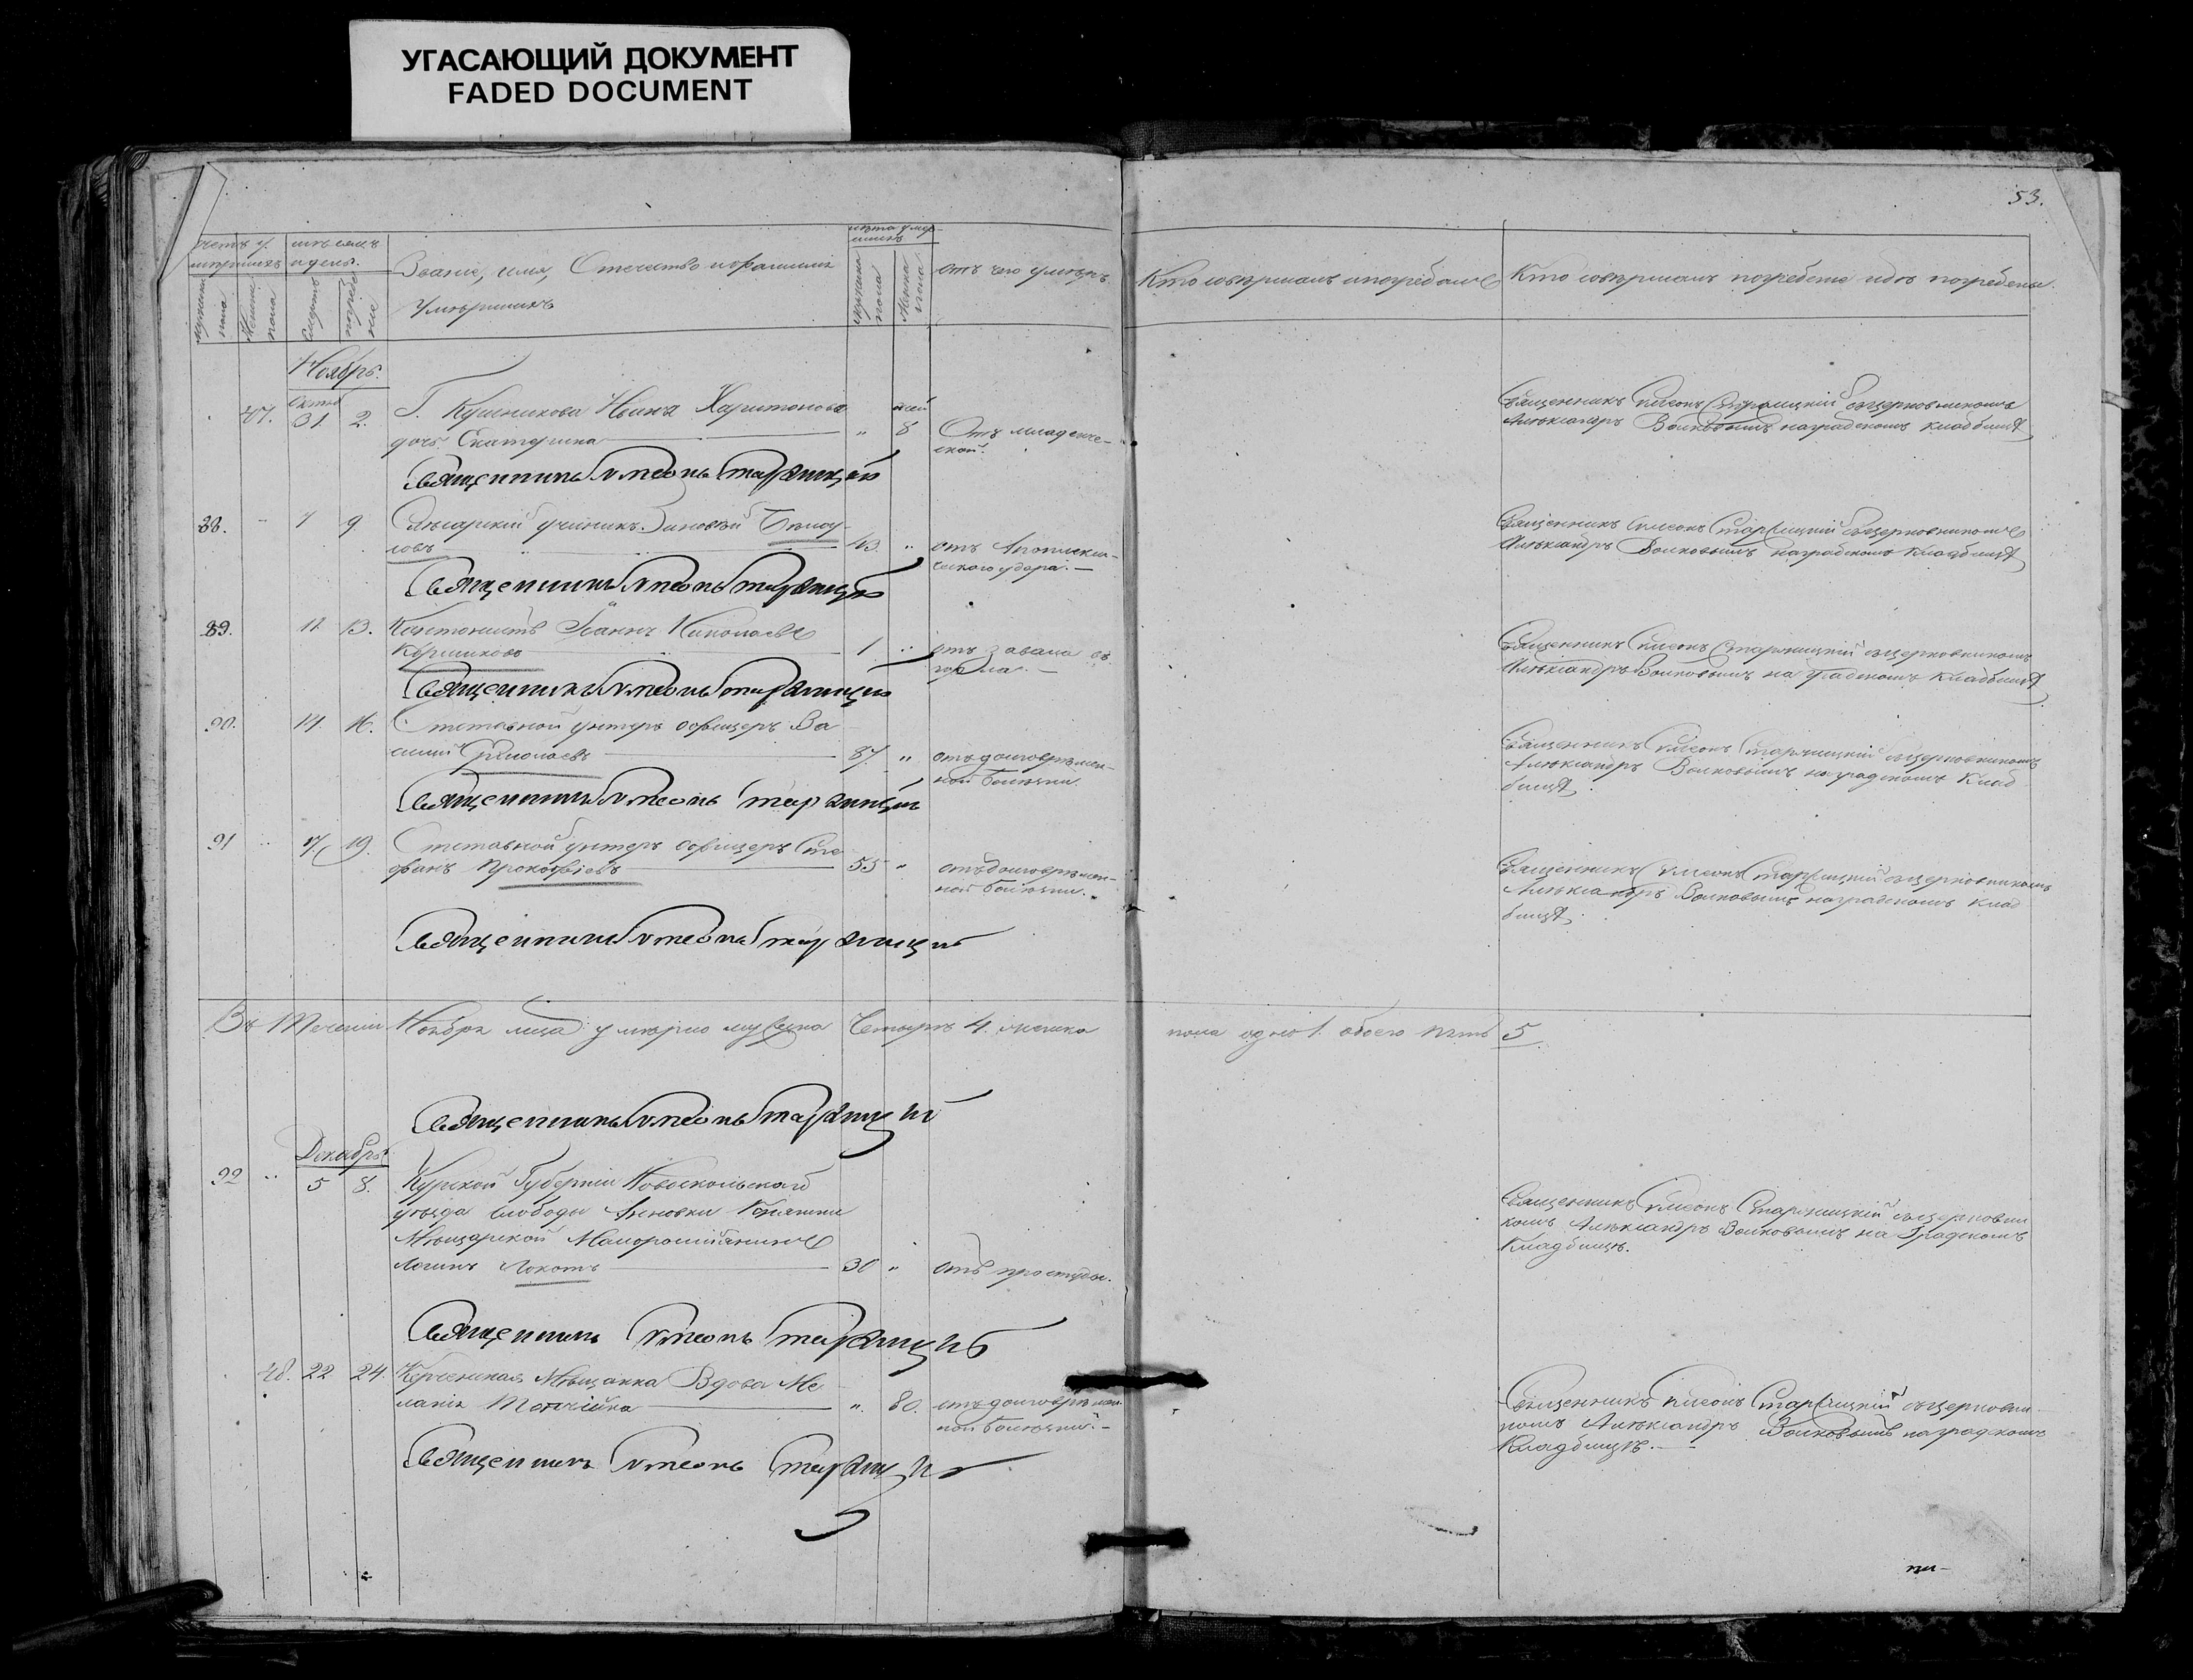 УГАСАЮЩИЙ ДОКУМЕНТ
FADED DOCUMENT
53.
Званіе, имя, Отечество и фамилія
Умершихъ
отъ чего умеръ
Кто совершалъ погребеніе и гдѣ погребены.
мужеска пола
женска пола
Ноябрь.
47. 31. 2. Г. Кушникова Ивана Харитонова
дочь Екатерина „ 8
Отъ младенче-
ской.
Священникъ Симеонъ Старжицкій съ церковникомъ
Александръ Волковымъ на градскомъ кладбищѣ
Священникъ Симеонъ Старжицкій
88. 7 9 Слесарскій ученикъ Зиновій
43. „ отъ Апоплекси-
ческого удара.
Священникъ Симеонъ Старжицкій съ церковникомъ
Александръ Волковымъ на градскомъ кладбищѣ
Священникъ Симеонъ Старжицкій
89. 11 13. Кантонистъ Іоаннъ Николаевъ
1 „ отъ завала въ
горла.
Священникъ Симеонъ Старжицкій съ церковникомъ
Александръ Волковымъ на градскомъ кладбищѣ
Священникъ Симеонъ Старжицкій
90. 14. 16. Отставной унтеръ офицеръ Ва
силій
87. „ отъ долговремен-
ной болѣзни
Священникъ Симеонъ Старжицкій съ церковникомъ
Александръ Волковымъ на градскомъ Клад
бищѣ.
Священникъ Симеонъ Старжицкій
91 17. 19. Отставной унтеръ офицеръ Сте
фанъ Прокофіевъ 55 „ отъ долговремен-
ной болѣзни.
Священникъ Симеонъ Старжицкій съ церковникомъ
Александръ Волковымъ на градскомъ клад
бищѣ.
Священникъ Симеонъ Старжицкій
Въ теченіи Ноября мца умерло мужска Четыре 4. женска пола одно 1. обоего пять 5.
Священникъ Симеонъ Старжицкій
Декабрь
92 „ 5 8. Курской Губерніи Новоскольскаго
уѣзда слободы
Малороссіянинъ
Логинъ Локоть 30 „ отъ простуды.
Священникъ Симеонъ Старжицкій съ церковни
комъ Александръ Волковымъ на Градскомъ
Кладбищѣ.
Священникъ Симеонъ Старжицкій
48. 22 24. Керченская Мѣщанка Вдова Ме
ланія „ 80. отъ долговремен
ной болѣзни.
Священникъ Симеонъ Старжицкій съ церковни
комъ Александръ Волковымъ на градскомъ
Кладбищѣ.
Священникъ Симеонъ Старжицкій